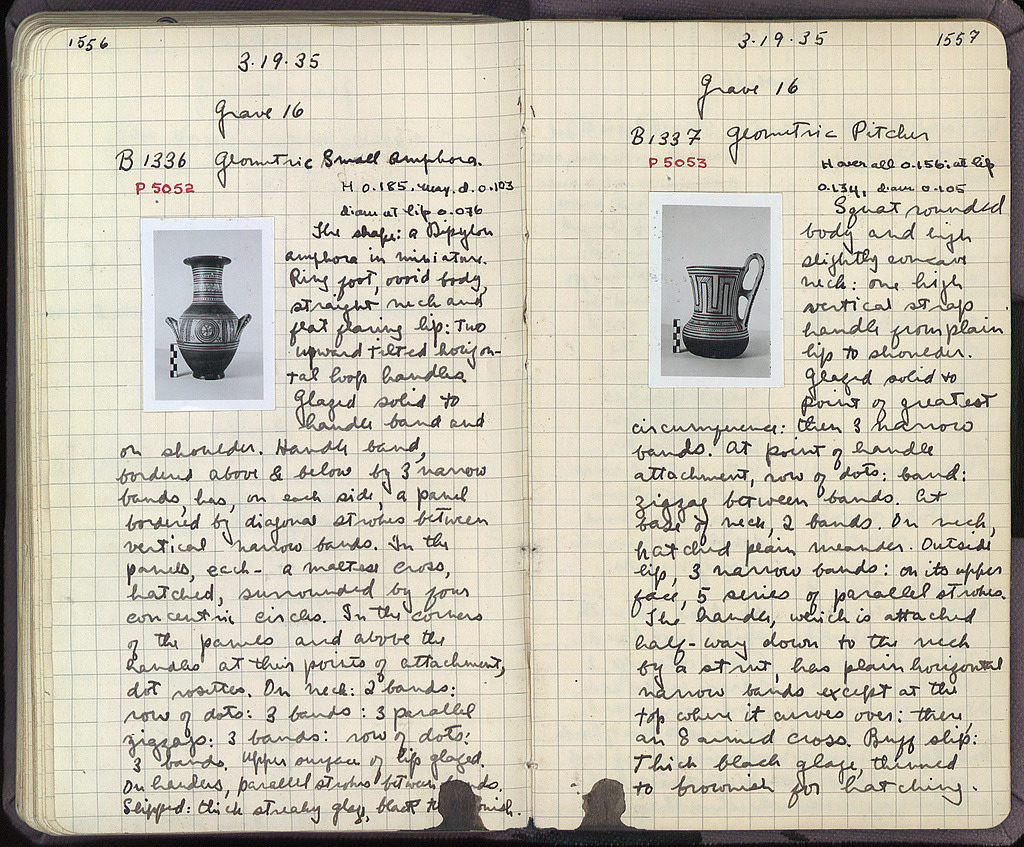 1556
3·19·35
Grave 16
B 1336 Geometric Small Amphora.
P 5052
H 0.185. max. d. 0.103
diam at lip 0.076
The shape: a Dipylon
amphora in miniature.
Ring foot, ovoid body,
straight neck and
flat flaring lip: two
upward tilted horizon-
tal loop handles.
Glazed solid to
handle band and
on shoulder. Handle band,
bordered above & below by 3 narrow
bands, has, on each side, a panel
bordered by diagonal strokes between
vertical narrow bands. In the
panels, each - a maltese cross,
hatched, surrounded by four
concentric circles. In the corners
of the panels and above the
handles at their points of attachment,
dot rosettes. On neck: 2 bands:
row of dots: 3 bands: 3 parallel
zigzags: 3 bands: row of dots:
3 bands. Upper surface of lip glazed.
On handles, parallel strokes between bands.
Slipped: thick streaky glaze, black
3·19·35
1557
Grave 16
B 1337 Geometric Pitcher
P 5053
H over all 0.156: at lip
0.134, diam 0.105
Squat rounded
body and high
slightly concave
neck: one high
vertical strap
handle from plain
lip to shoulder.
Glazed solid to
point of greatest
circumference: then 3 narrow
bands. At point of handle
attachment, row of dots: band:
zigzag between bands. At
base of neck, 2 bands. On neck,
hatched plain meander. Outside
lip, 3 narrow bands: on its upper
face, 5 series of parallel strokes.
The handle, which is attached
half-way down to the neck
by a strut, has plain horizontal
narrow bands except at the
top where it curves over: there,
an 8 armed cross. Buff slip:
Thick black glaze, thinned
to brownish for hatching.